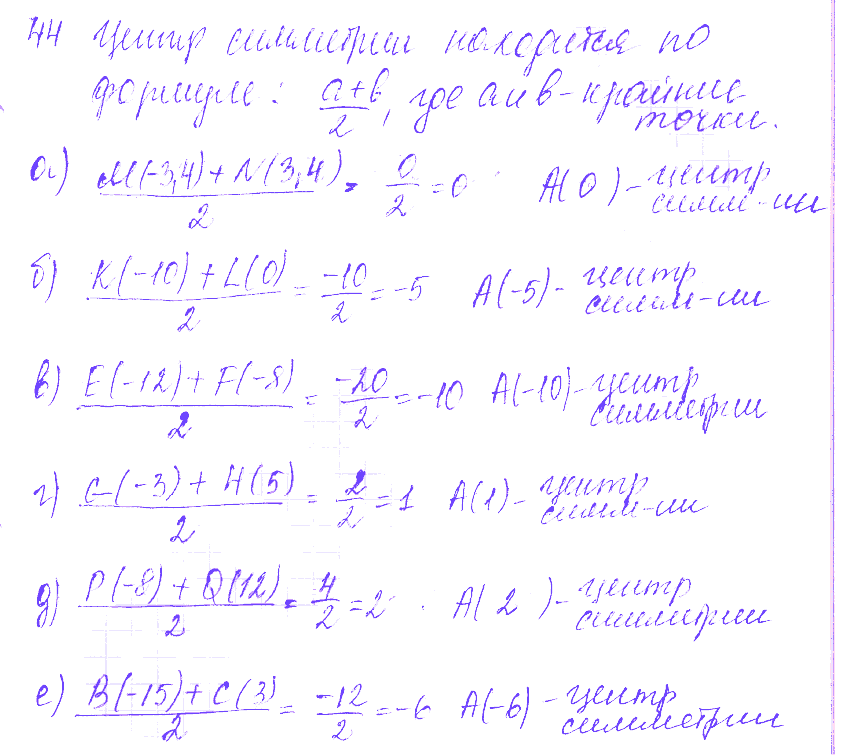 44 Центр симметрии находится по
формуле: (a+b)/2, где a и b - крайние
точки.
а) (M(-3,4) + N(3,4))/2 = 0/2 = 0 A(0) - центр
симм-ии
б) (K(-10) + L(0))/2 = -10/2 = -5 A(-5) - центр
симм-ии
в) (E(-12) + F(-8))/2 = -20/2 = -10 A(-10) - центр
симметрии
г) (G(-3) + H(5))/2 = 2/2 = 1 A(1) - центр
симм-ии
д) (P(-8) + Q(12))/2 = 4/2 = 2 A(2) - центр
симметрии
е) (B(-15) + C(3))/2 = -12/2 = -6 A(-6) - центр
симметрии